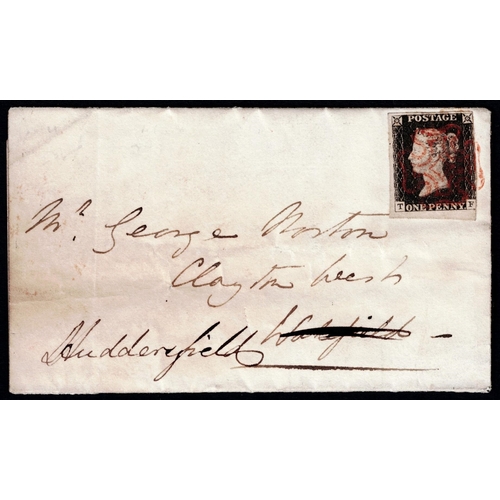 POSTAGE
T ONE PENNY F
Mr George Norton
Clayton West
Huddersfield Wakefield